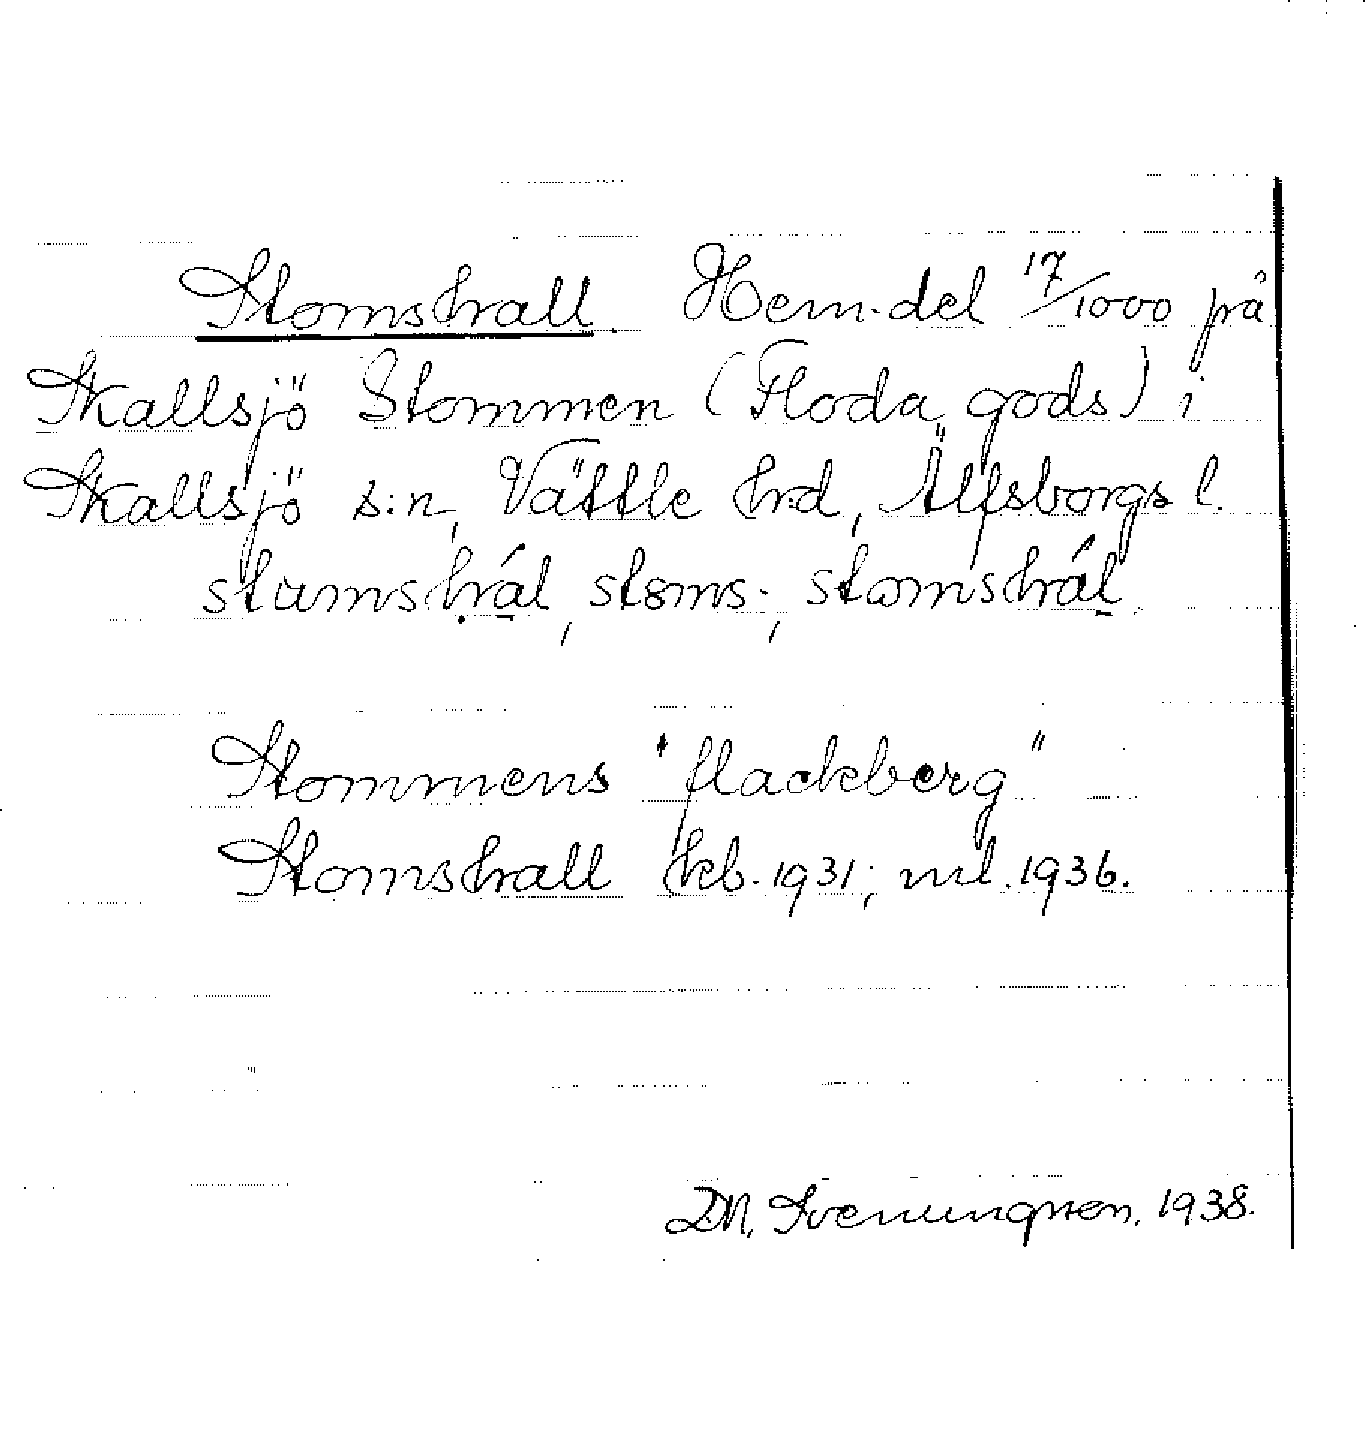 Stomshall. Hem.del 17/1000 på
Skallsjö Stommen (Floda gods) i
Skallsjö s:n, Vättle hrd, Älfsborgs l.
stumshál, stoms-, stomshál.
Stommens "flackberg"
Stomshall hcb. 1931; ml. 1936.
D.N. Svenungsson, 1938.